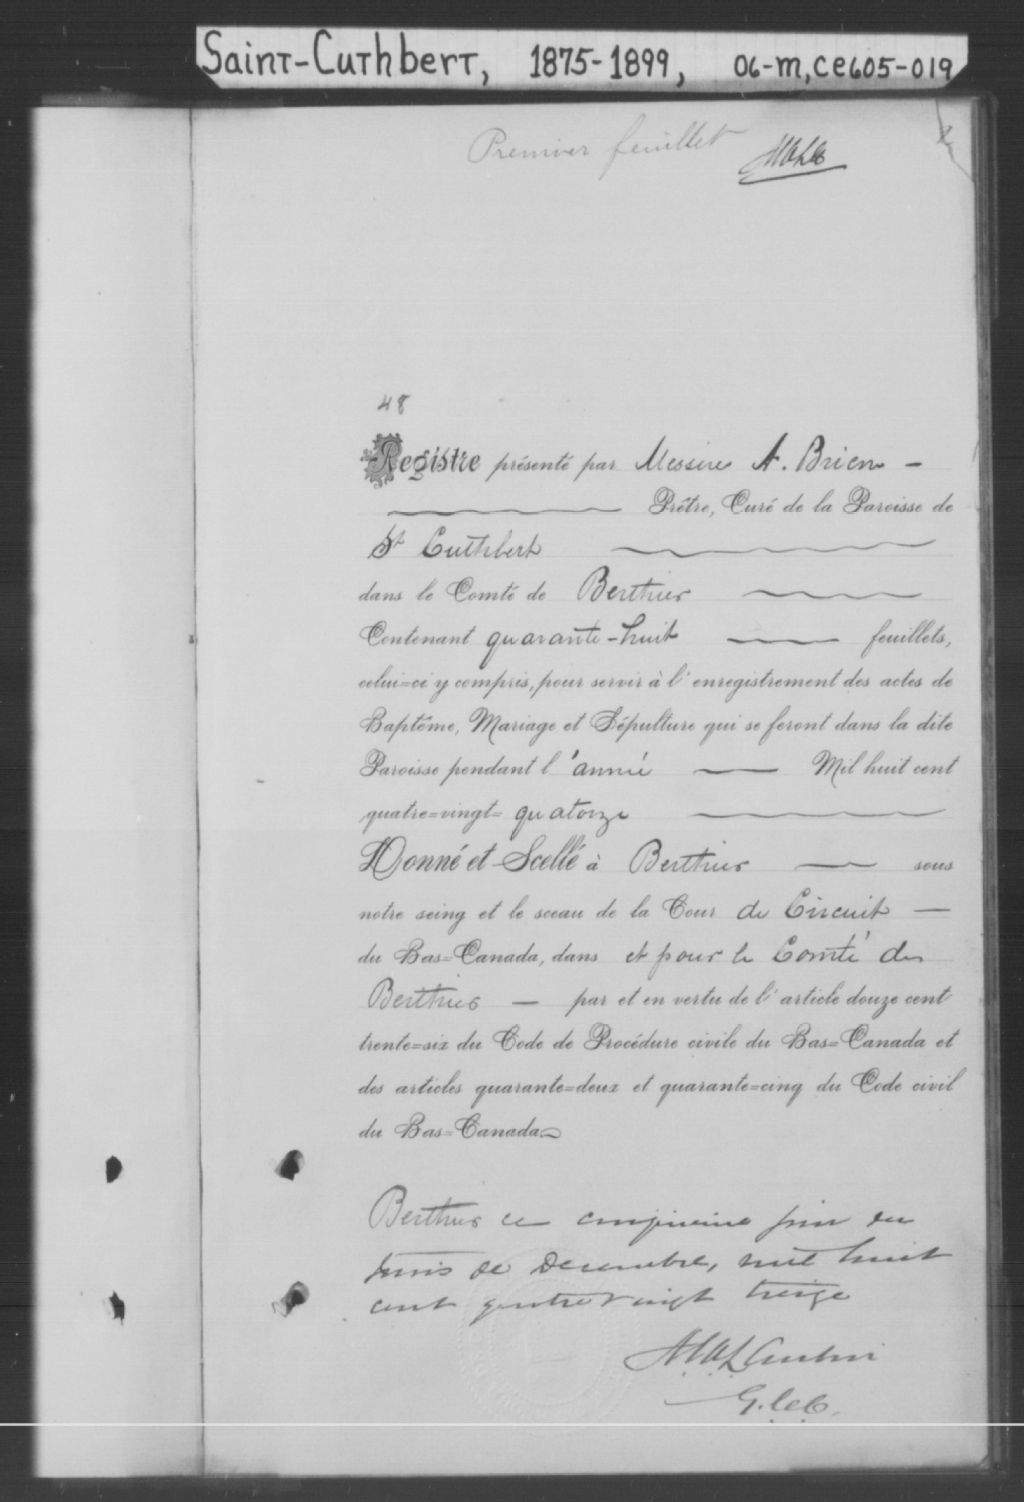 Saint-Cuthbert, 1875-1899, 06-M,CE605-019
Premier feuillet
2
48
Registre présenté par Messire A. Brien
Prêtre, Curé de la Paroisse de
St Cuthbert
dans le Comté de Berthier
Contenant quarante-huit feuillets,
celui=ci y compris, pour servir à l'enregistrement des actes de
Baptême, Mariage et Sépulture qui se feront dans la dite
Paroisse pendant l'année Mil huit cent
quatre=vingt= quatorze
Donné et Scellé à Berthier sous
notre seing et le sceau de la Cour de Circuit
du Bas=Canada, dans et pour le Comté de
Berthier par et en vertu de l'article douze cent
trente=six du Code de Procédure civile du Bas=Canada et
des articles quarante=deux et quarante=cinq du Code civil
du Bas=Canada
Berthier ce cinquieme jour du
mois de Decembre, mil huit
cent quatre vingt treize
G.C.C.